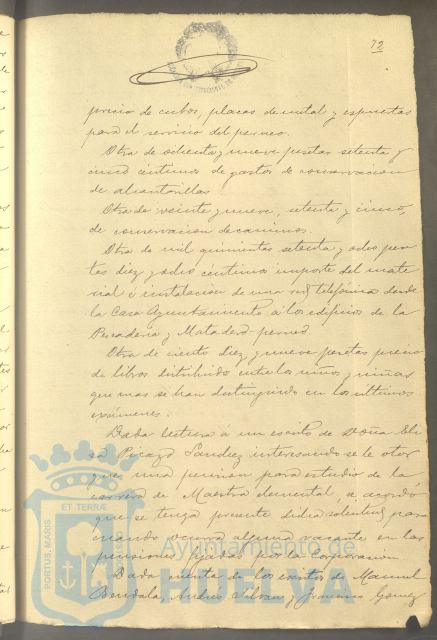 72
precio de cubos, placas de metal y espuertas
para el servicio del perneo.
Otra de ochenta y nueve pesetas setenta y
cinco centimos de gastos de conservacion
de alcantarillas
Otra de veinte y nueve, setenta y cinco,
de conservacion de caminos.
Otra de mil quinientas setenta y ocho pese
tas diez y ocho centimos importe del mate
rial é instalacion de una red telefónica desde
la Casa Ayuntamiento á los edificios de la
Pescadería y Matadero-perneo.
Otra de ciento diez y nueve pesetas precio
de libros distribuidos entre los niños y niñas
que mas se han distinguido en los últimos
exámenes.
Dada lectura á un escrito de Doña Eli
sa Sanchez interesando se le otor
gue una pension para estudio de la
carrera de Maestra elemental, se acordó
que se tenga presente dicha solicitud para
cuando ocurra alguna vacante en las
pensiones que por la corporacion
Dada cuenta de los escritos de Manuel
Bendala, Andrés Silvan y Gomez
PORTUS MARIS
ET TERRÆ
Ayuntamiento de
HUELVA